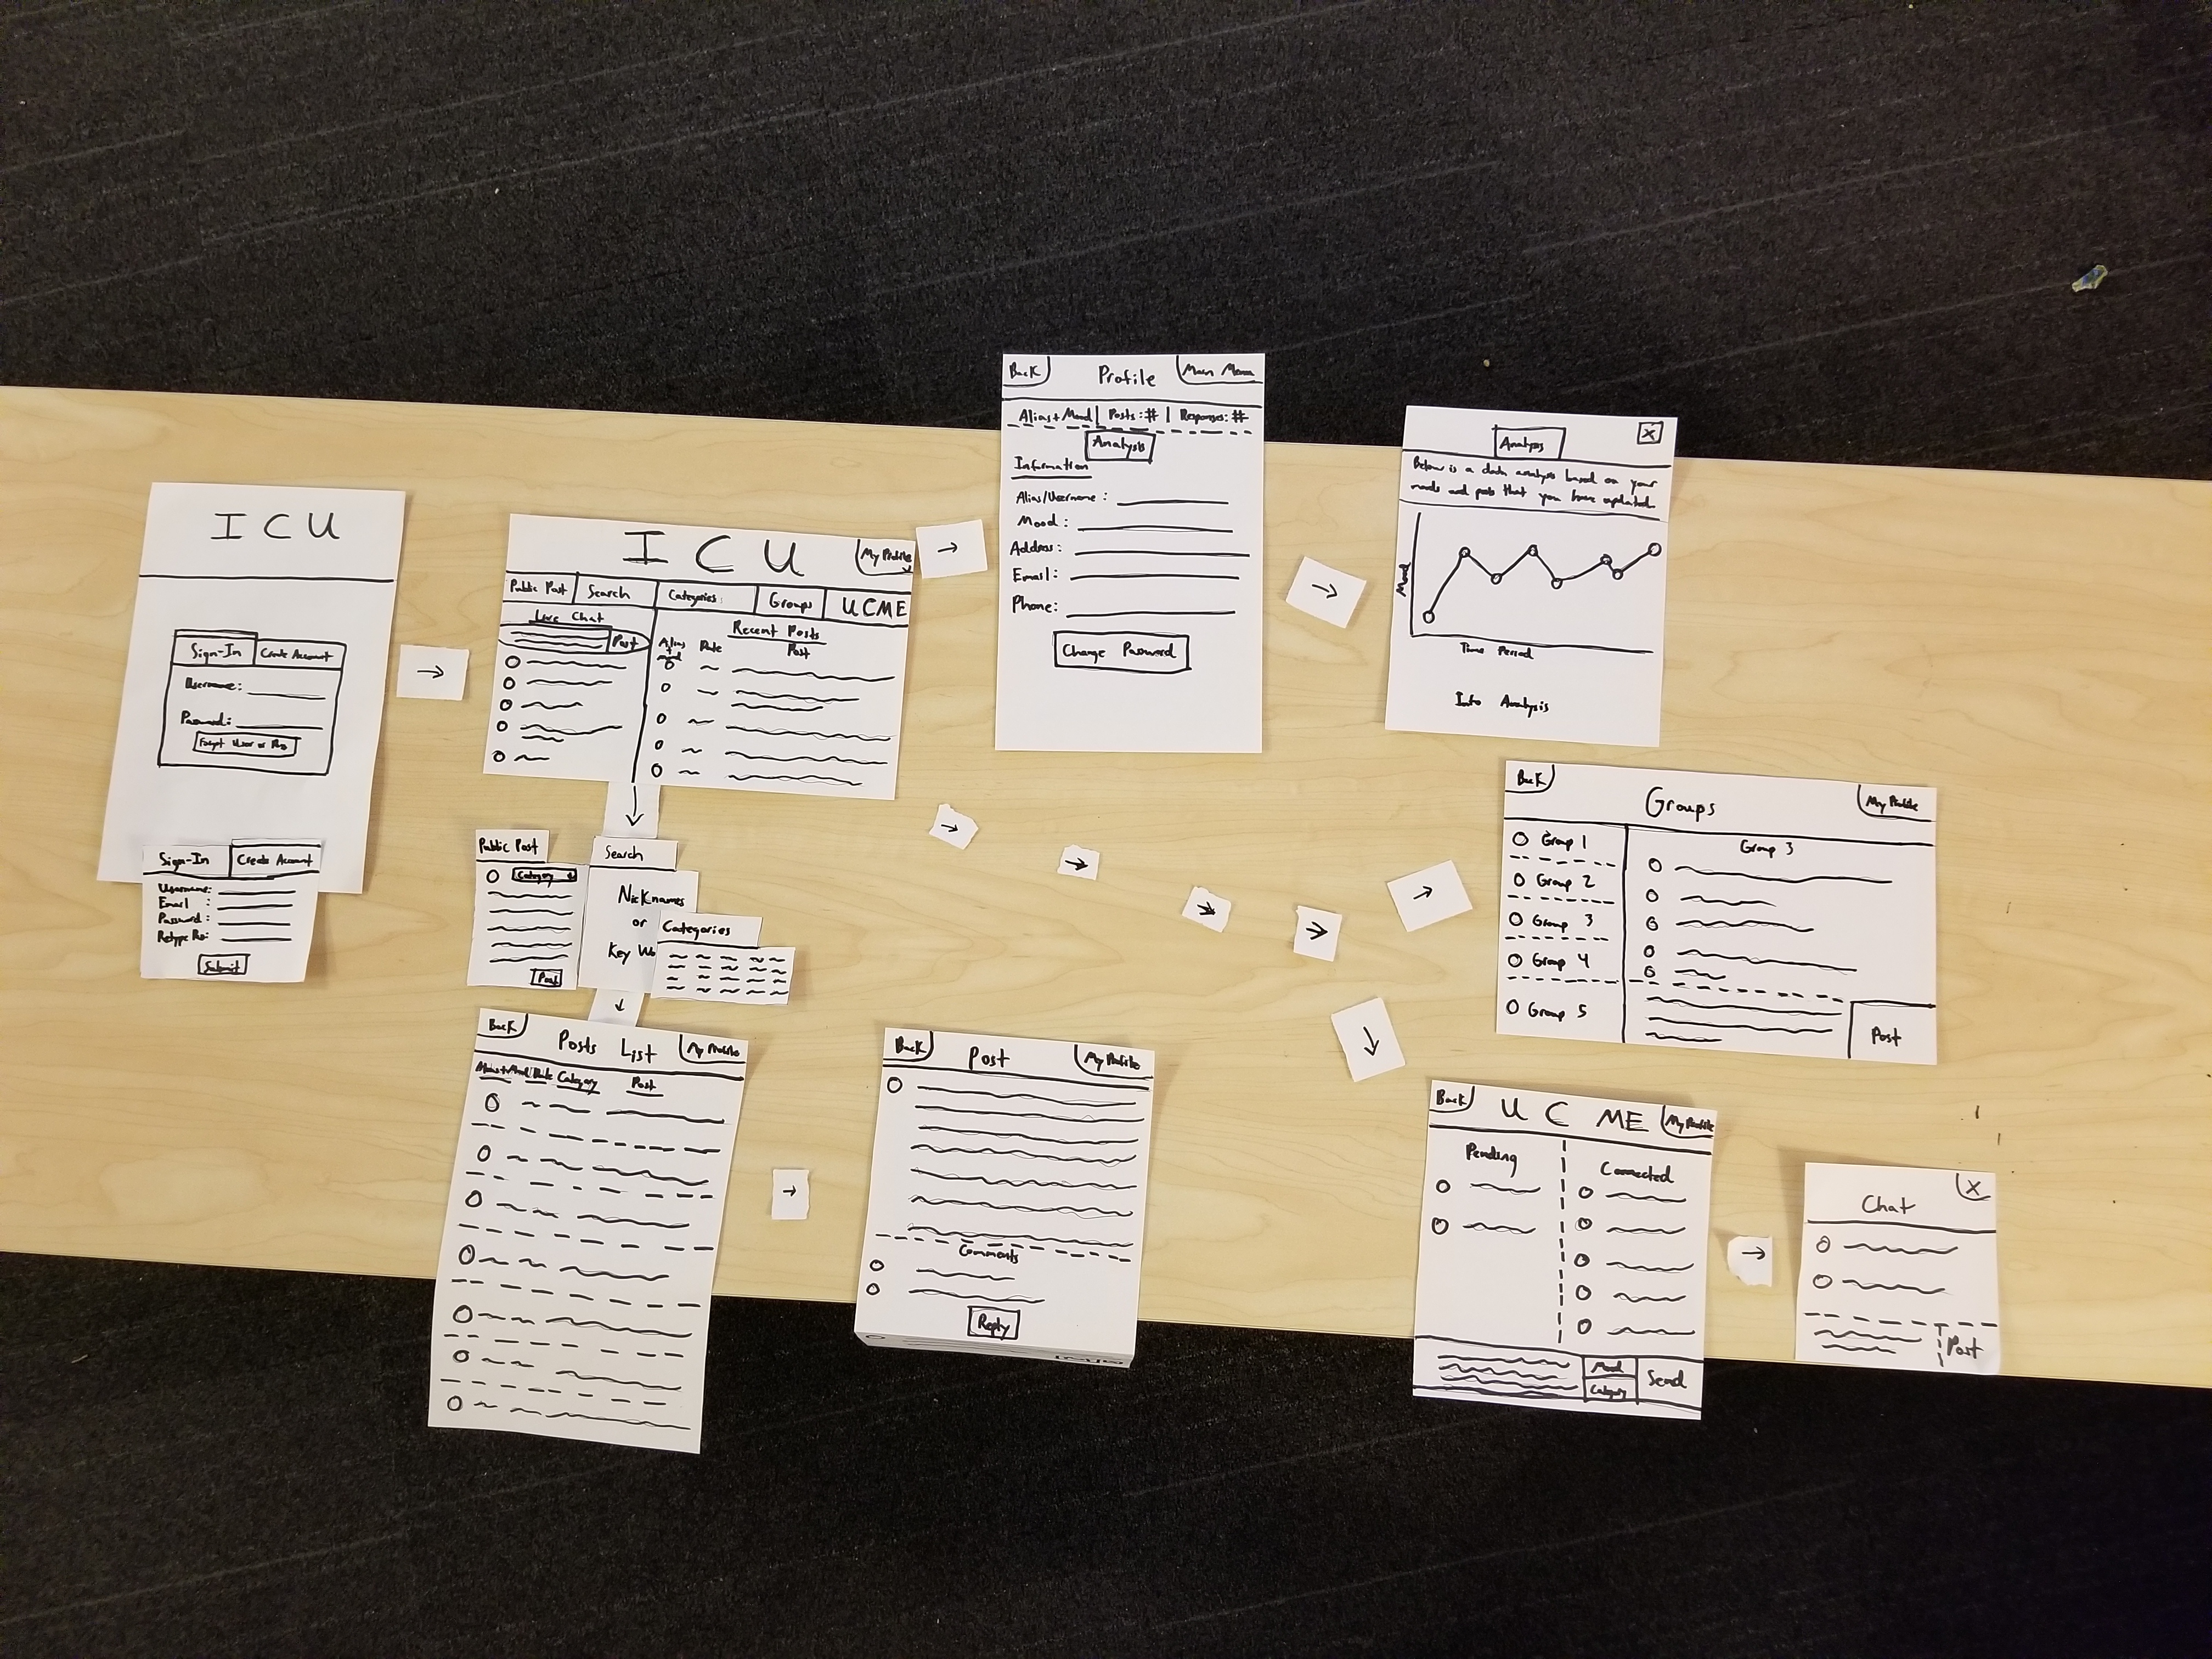 I C U
Sign-In
Create Account
Username:
Password:
Forgot User or Pas
Sign-In
Create Account
Username:
Email :
Password :
Retype Pas:
Submit
I C U
My Profile
Public Post
Search
Categories:
Groups
UCME
Live Chat
Post
Recent Posts
Alias
Date
Post
Public Post
Category
Post
Search
Nicknames
or
Key Wo
Categories
Back
Posts List
My Profile
Alias+Mood
Date
Category
Post
Back
Post
My Profile
Comments
Reply
Back
Profile
Main Menu
Alias+Mood | Posts:# | Responses:#
Analysis
Information
Alias/Username :
Mood :
Address:
Email:
Phone:
Change Password
Analysis
X
Below is a data analysis based on your
moods and posts that you have updated.
Mood
Time Period
Info Analysis
Back
Groups
My Profile
Group 1
Group 2
Group 3
Group 4
Group 5
Group 3
Post
Back
U C ME
My Profile
Pending
Connected
Mood
Category
Send
Chat
X
Post